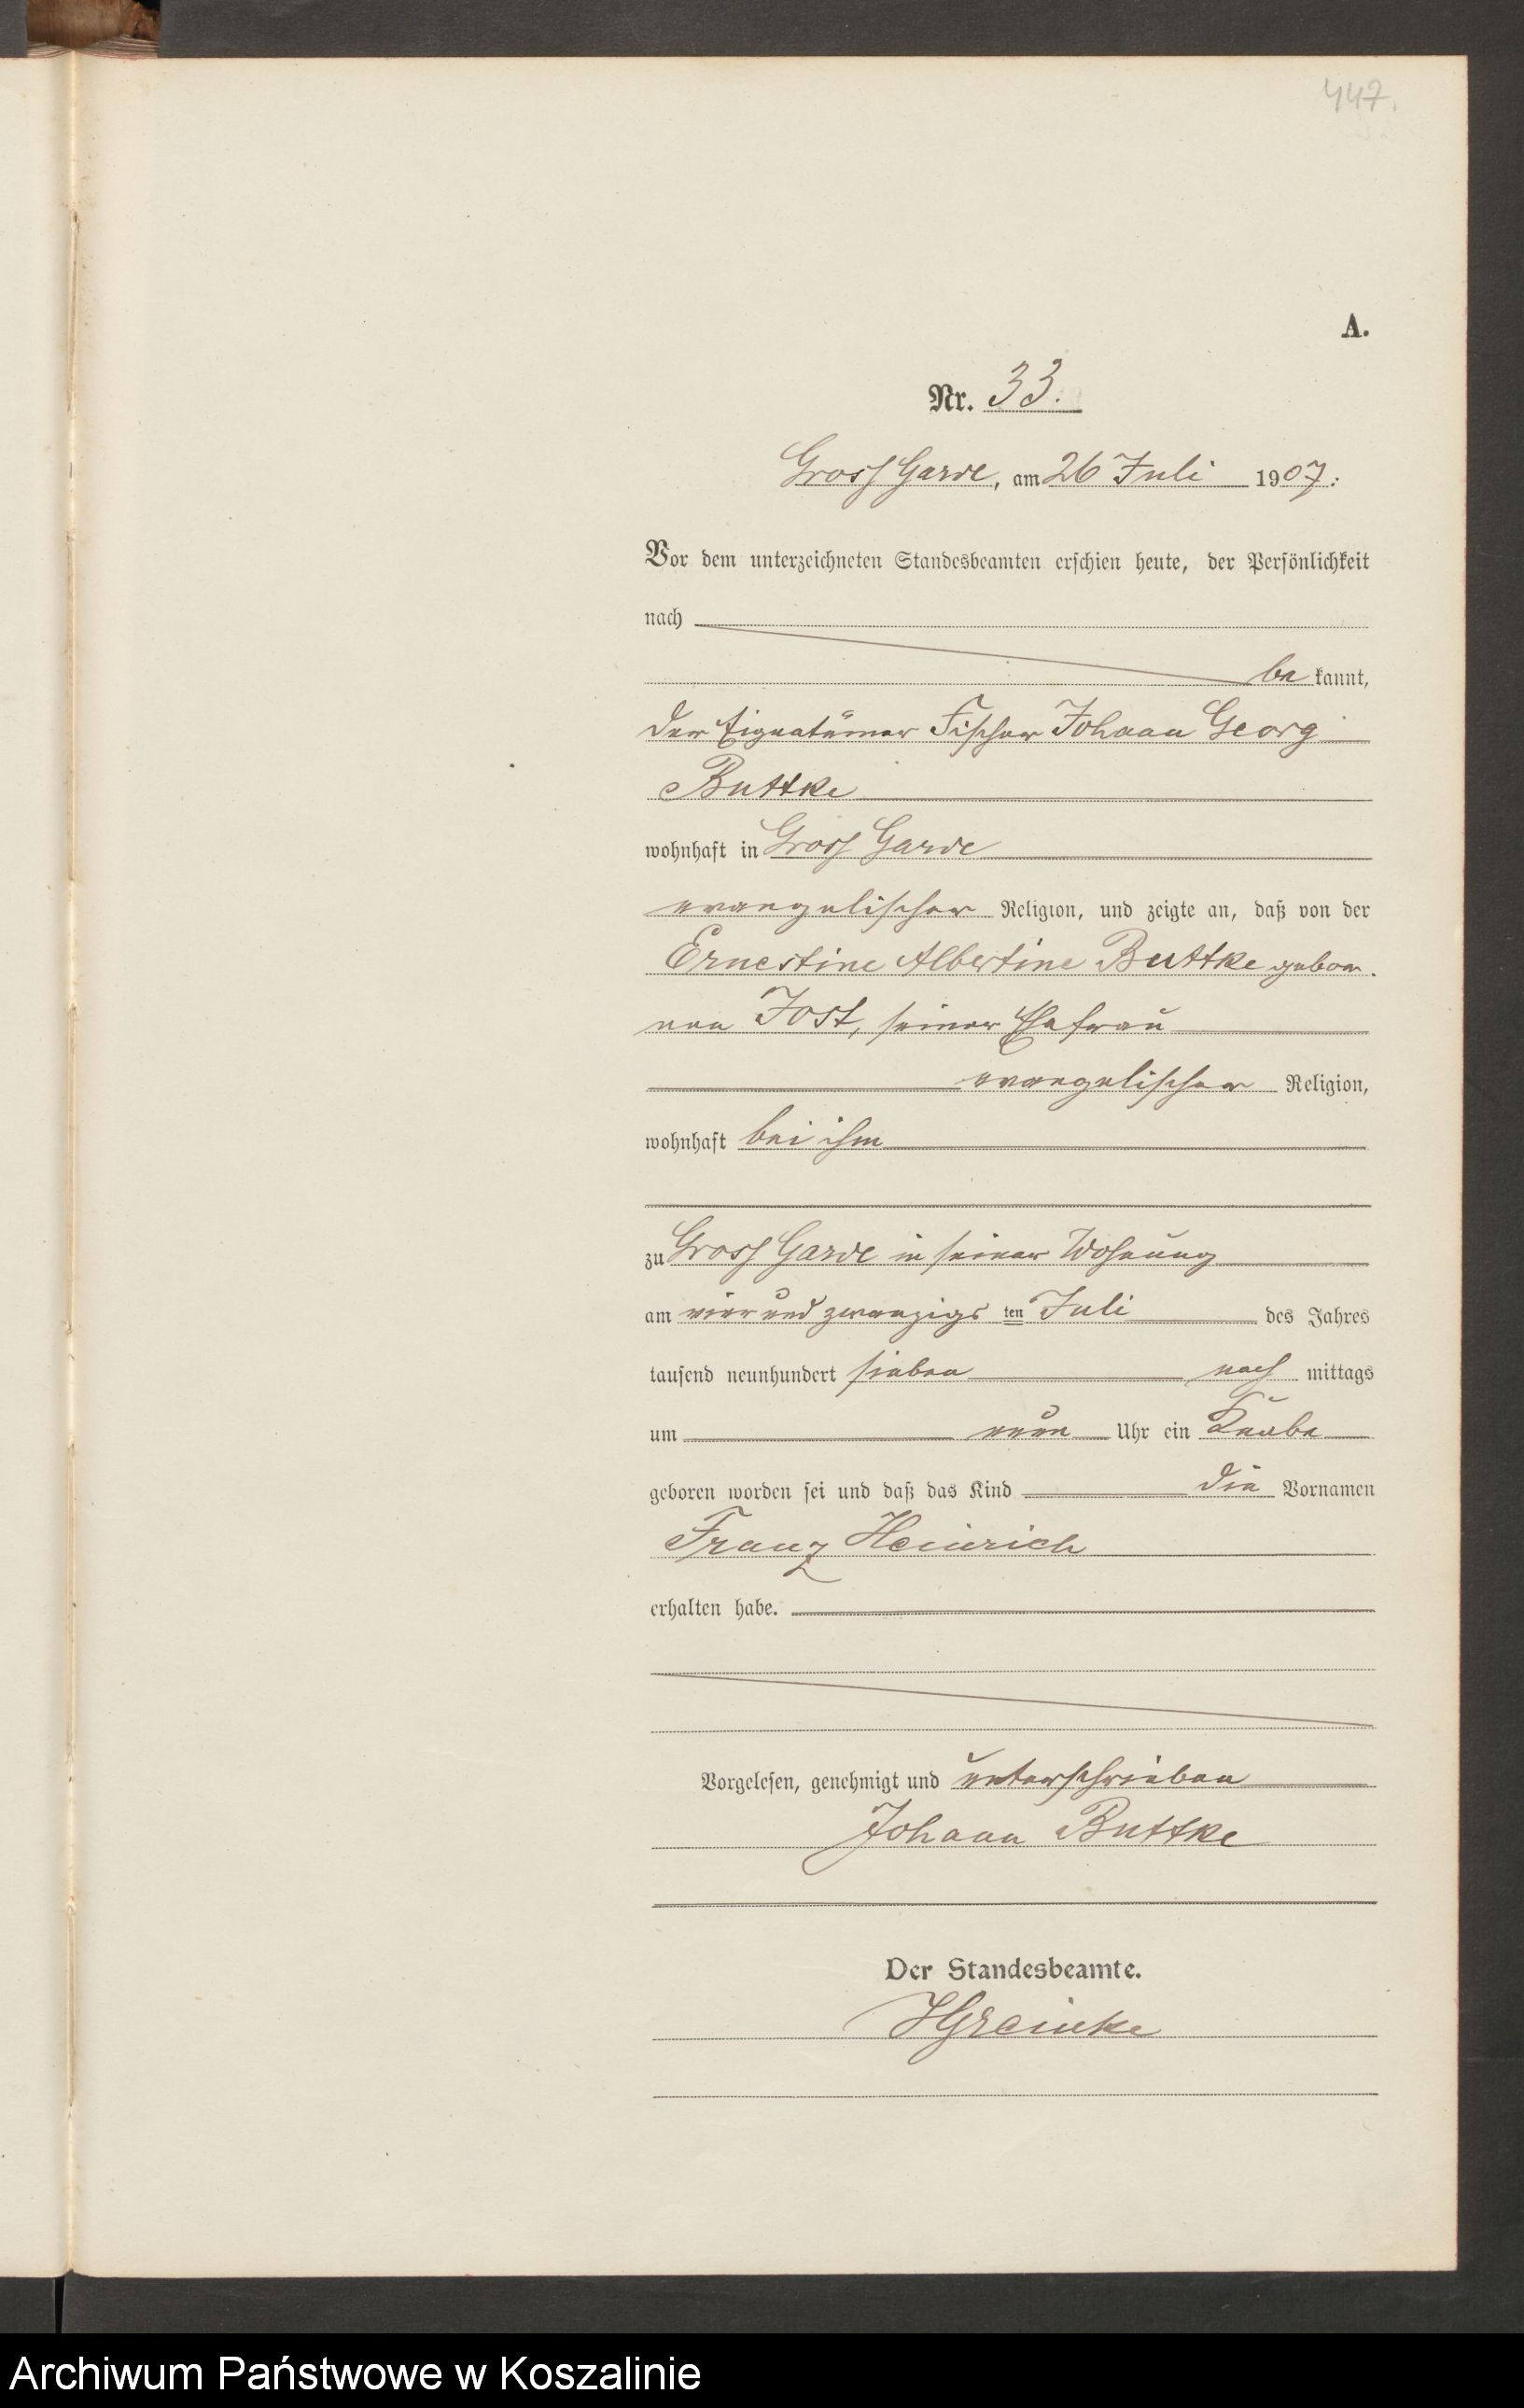 447.
A.
Nr. 33.
Gross Garde, am 26 Juli 1907.
Vor dem unterzeichneten Standesbeamten erschien heute, der Persönlichkeit
nach
be kannt,
der Eigentümer Fischer Johann Georg
Buttke
wohnhaft in Gross Garde
evangelischer Religion, und zeigte an, daß von der
Ernestine Albertine Buttke gebor.
nen Jost, seiner Ehefrau
evangelischer Religion,
wohnhaft bei ihm
zu Gross Garde in seiner Wohnung
am vier und zwanzigs ten Juli des Jahres
tausend neunhundert sieben nach mittags
um neun Uhr ein Knabe
geboren worden sei und daß das Kind die Vornamen
Franz Heinrich
erhalten habe.
Vorgelesen, genehmigt und unterschrieben
Johann Buttke
Der Standesbeamte.
Archiwum Państwowe w Koszalinie